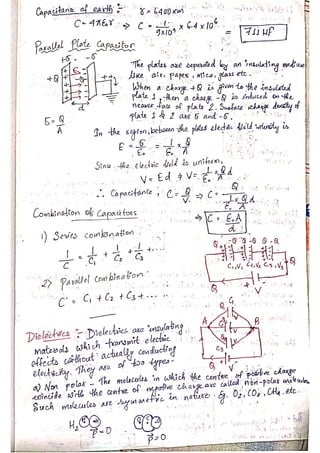 Capacitance of earth :-
r = 6400 km
C = 4πε₀r ⇒ C = 1/9×10⁹ × 6.4 × 10⁶
711 μF
Parallel Plate Capacitor
+σ - -σ
+Q
d
The plates are separated by an insulating medium
like air, paper, mica, glass etc.
When a charge +Q is given to the insulated
plate 1, then a charge -Q is induced on the
nearer face of plate 2. Surface charge density of
plate 1 & 2 are σ and -σ.
σ = Q/A
In the region between the plates electric field intensity is
E = σ/ε₀ = 1/ε₀ × Q/A
Since the electric field is uniform,
V = Ed ⇒ V = 1/ε₀ Q/A d
∴ Capacitance, C = Q/V ⇒ C = Q / 1/ε₀ Q/A d
⇒ C = ε₀A/d
Combination of Capacitors
1) Series combination
1/C = 1/C₁ + 1/C₂ + 1/C₃ + ...
Q -Q Q -Q Q -Q
C₁, V₁ C₂, V₂ C₃, V₃
Q
Q
+ V -
2) Parallel combination
C = C₁ + C₂ + C₃ + ...
Q C₁
A B
C₃
Q V
Dielectrics :- Dielectrics are insulating
materials which transmit electric
effects without actually conducting
electricity. They are of two types -
a) Non polar - The molecules in which the centre of positive charge
coincide with the centre of negative charge are called non-polar molecules
Such molecules are symmetric in nature. Eg. O₂, CO₂, CH₄, etc.
H₂
P = 0
P = 0